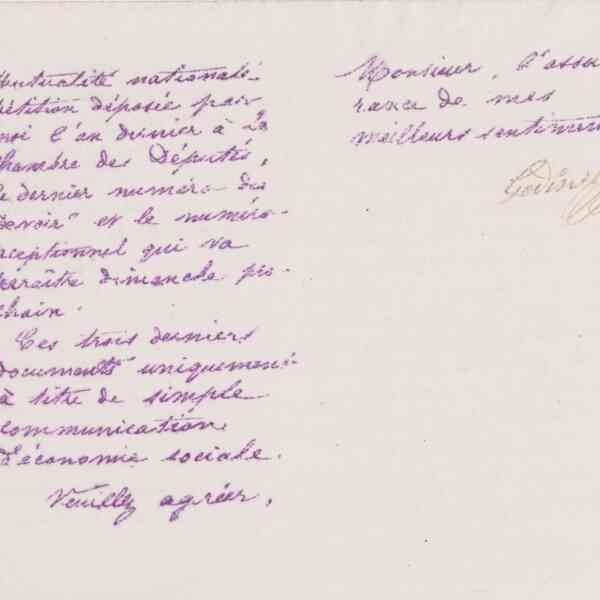 Mutualité nationale
pétition déposée par
moi l'an dernier à la
Chambre des Députés,
le dernier numéro du
Devoir" et le numéro
exceptionnel qui va
paraître dimanche pro-
chain.
Ces trois derniers
documents uniquement
à titre de simple
communication
d'économie sociale.
Veuillez agréer,
Monsieur, l'assu
rance de mes
meilleurs sentiments
Godin